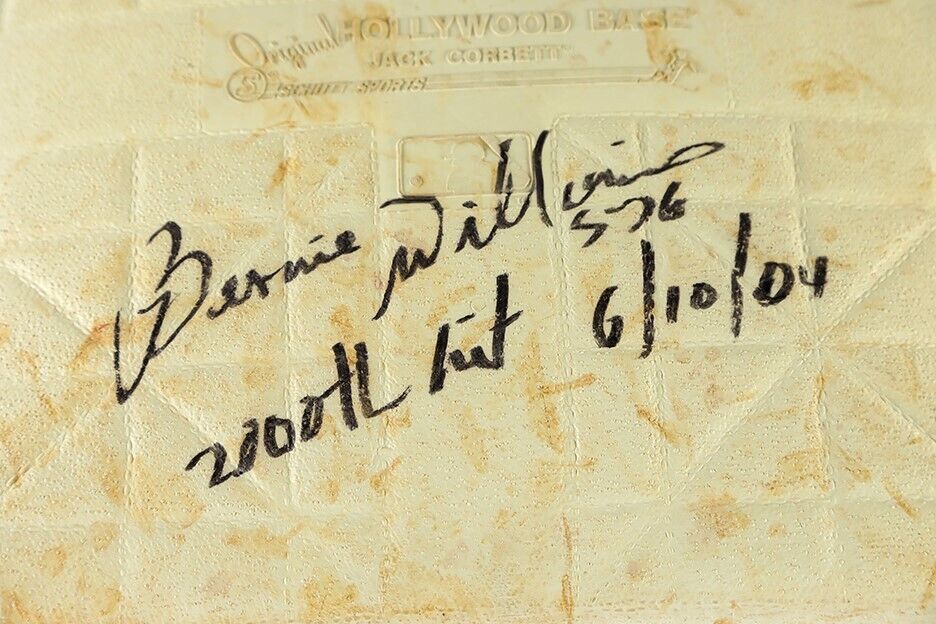 Original HOLLYWOOD BASE
JACK CORBETT™
S SCHUTT SPORTS
Bernie Williams
2000th hit 6/10/04